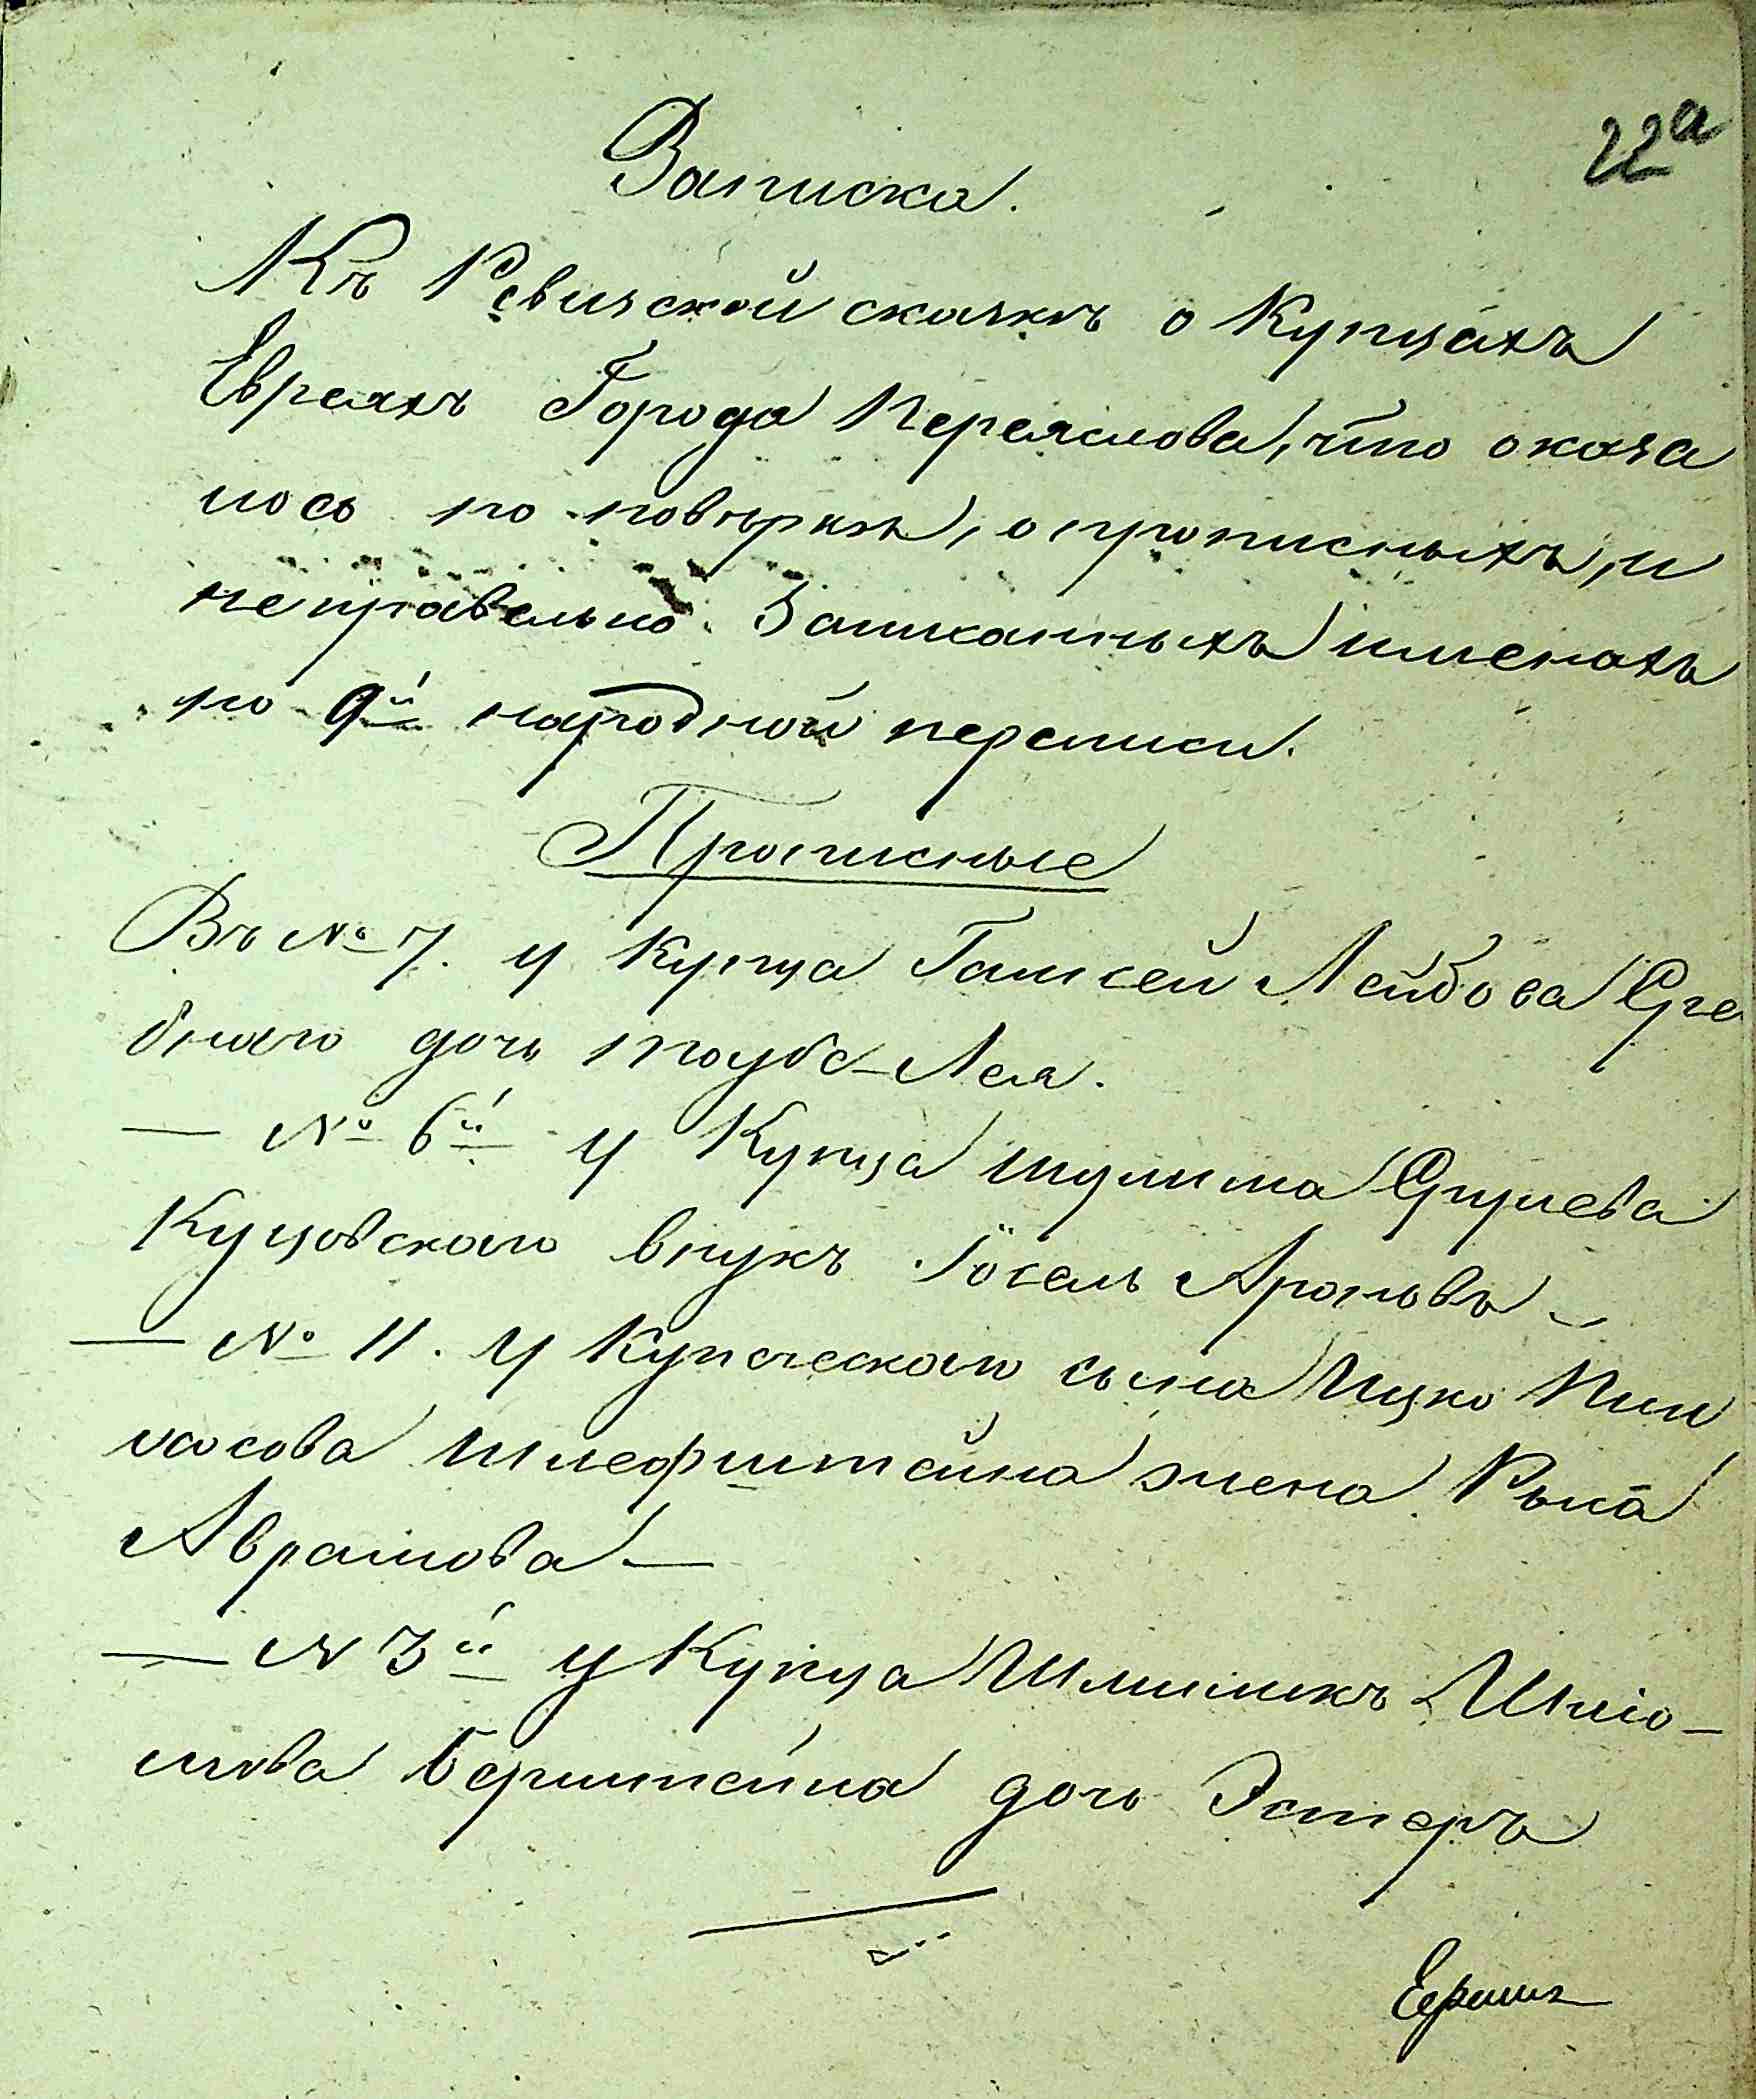 22а
Записка.
Къ Ревизской сказкѣ о Купцахъ
Евреяхъ Города Переяслова, что оказа
лось по повѣркѣ, о прописныхъ, и
неправельно Записанныхъ именахъ
по 9й народной переписи.
Прописные
Въ № 7. у Купца Гамшей Лейбова Сре
бнаго дочь Таубе-Лея.
— № 6й у Купца Шулима Сруlева
Куцовскаго внукъ Іосель Ароновъ
— № 11. у Купеческаго сына Ицко Пин
хасова Шлефштейна жена Рыся
Аврамова —
— № 3й у Купца Шлиомикъ Шлио-
мова Бернштейна дочь Эстеръ